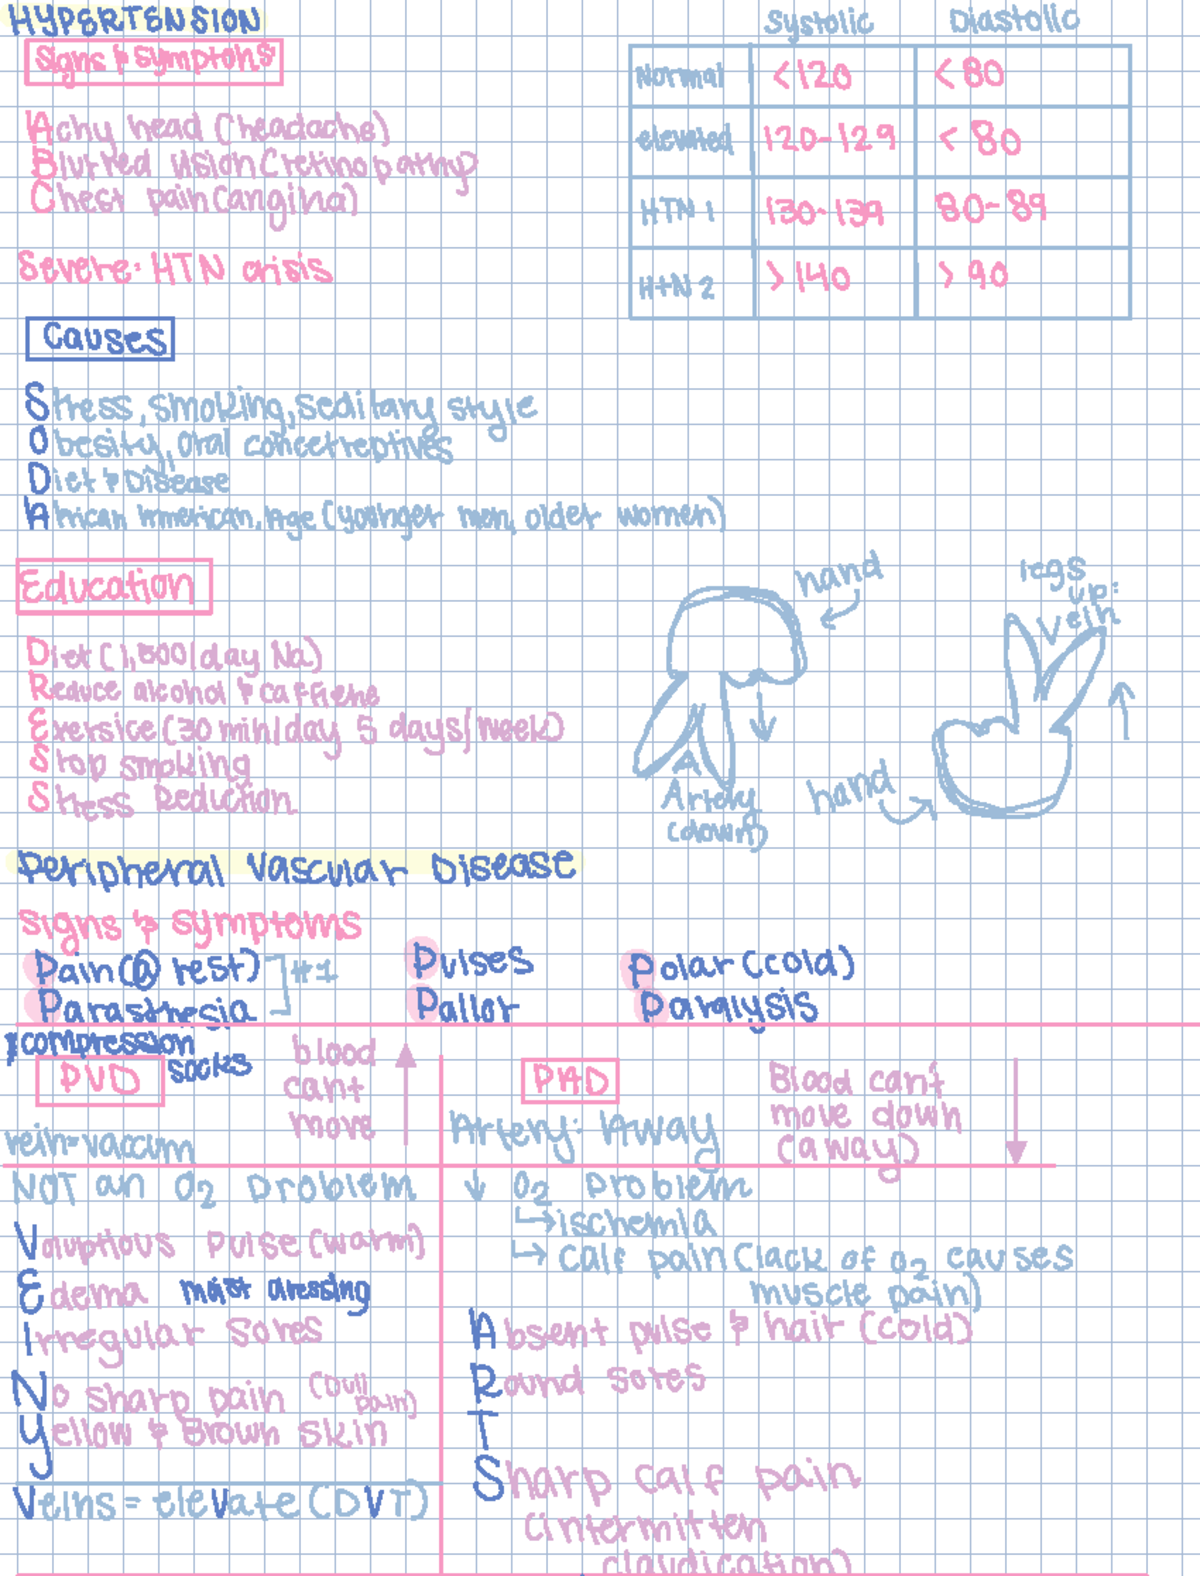 HYPERTENSION
Signs & Symptoms
Achy head (headache)
Blurred vision (retinopathy)
Chest pain (angina)
Severe: HTN crisis
Systolic Diastolic
Normal <120 <80
elevated 120-129 <80
HTN 1 130-139 80-89
HTN 2 >140 >90
Causes
Stress, smoking, seditary style
Obesity, oral concetreptives
Diet & Disease
African American, Age (younger men, older women)
Education
Diet (1,500/day Na)
Reduce alcohol & caffiene
Exersice (30 min/day 5 days/week)
Stop smoking
Stress Reduction
hand
Artery
(down)
legs
up:
Vein
hand
Peripheral Vascular Disease
Signs & Symptoms
Pain (@ rest) #1 Pulses Polar (cold)
Parasthesia Pallor Paralysis
compression
socks
PVD
blood
cant
move
vein=vaccum
PAD
Artery: Away
Blood can't
move down
(away)
NOT an O2 problem
Vauptious pulse (warm)
Edema moist dressing
Irregular sores
No sharp pain (Dull pain)
Yellow & Brown skin
Veins = elevate (DVT)
↓ O2 problem
↳ischemia
↳ calf pain (lack of O2 causes
muscle pain)
Absent pulse & hair (cold)
Round sores
T
Sharp calf pain
(intermitten
claudication)